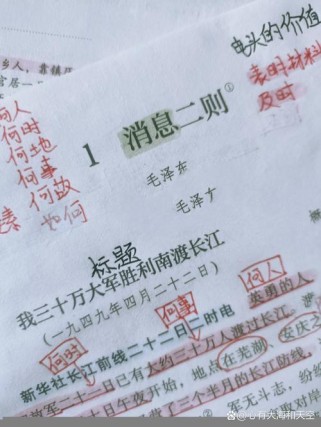 乡人，
官居一
电头的价值
表明材料
及时
何人
何时
何地
何事
何故
如何
1 消息二则①
毛泽东
毛泽东
标题
我三十万大军胜利南渡长江
（一九四九年四月二十二日）
何时
何事
何人
新华社长江前线二十二日二时电
英勇的人
二十二日已有大约三十万人渡过长江
二十日午夜开始，地点在芜湖、安庆之
营了三个半月的长江防线，
军无斗志，纷纷
心有大海和天空